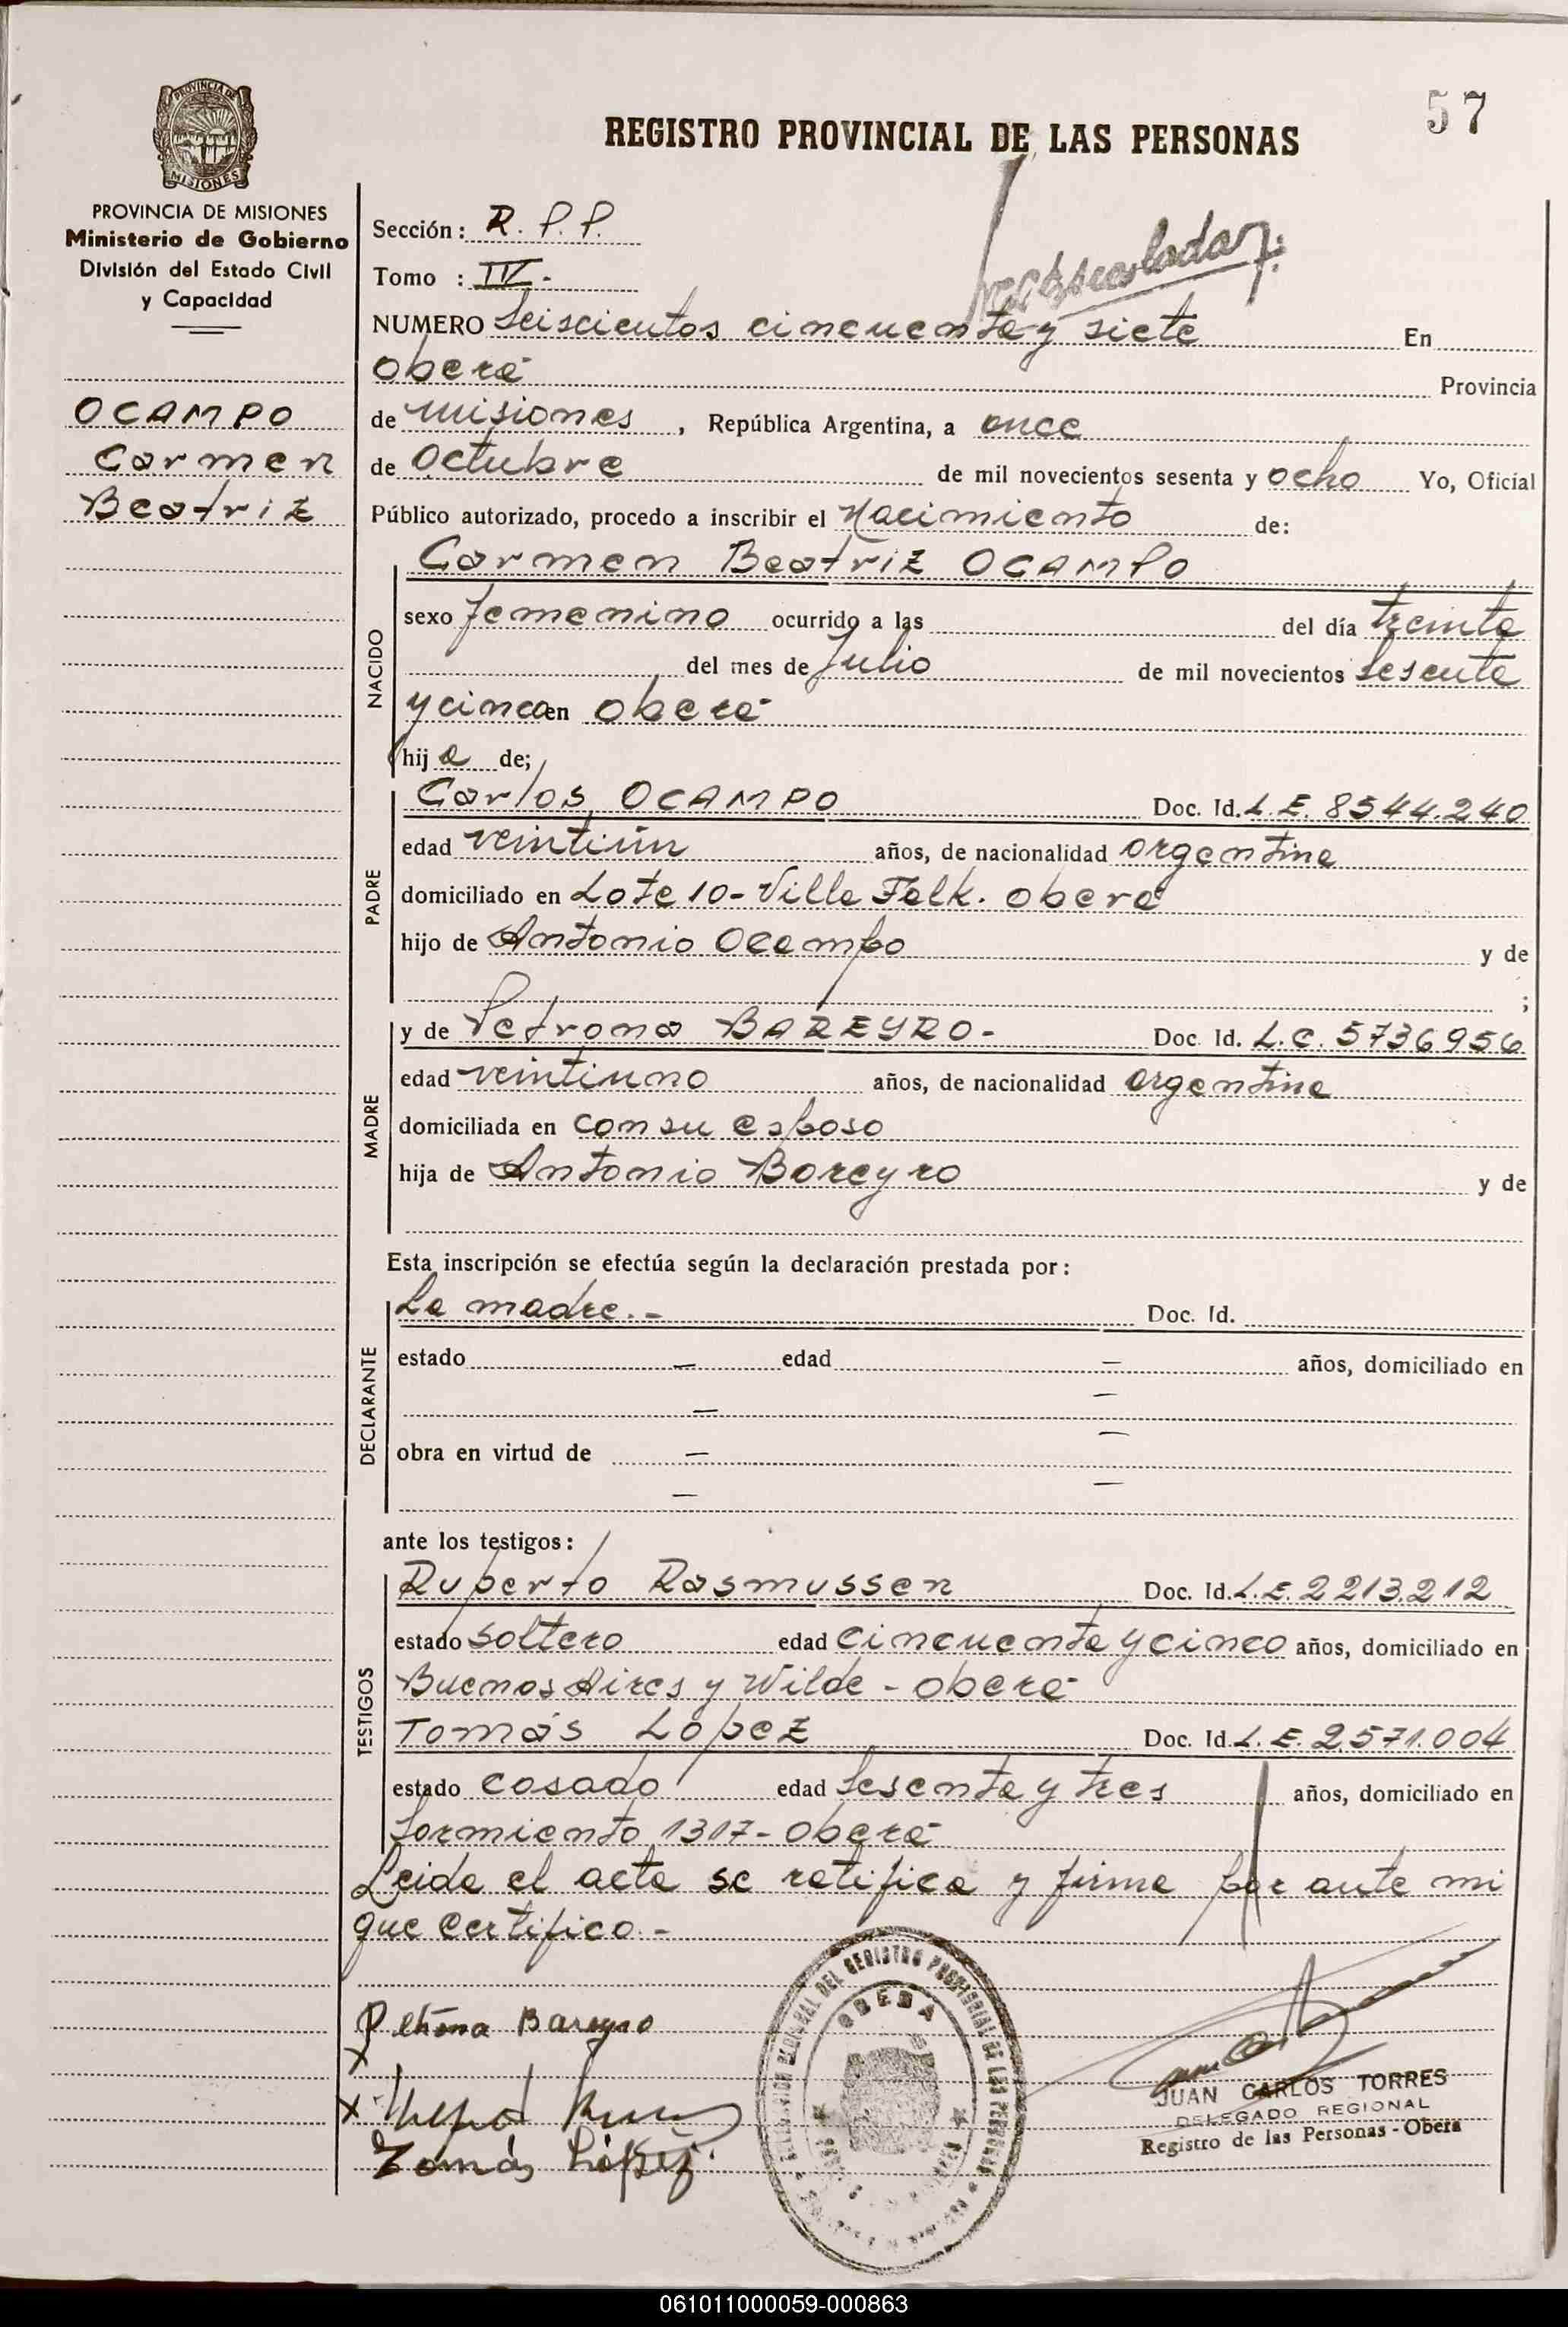 57
REGISTRO PROVINCIAL DE LAS PERSONAS
PROVINCIA DE
MISIONES
PROVINCIA DE MISIONES
Ministerio de Gobierno
División del Estado Civil
y Capacidad
OCAMPO
Carmen
Beatriz
Sección: R. P. P.
Tomo : IV.-
NUMERO Seiscientos cincuenta y siete En
Oberá Provincia
de Misiones, República Argentina, a once
de Octubre de mil novecientos sesenta y ocho Yo, Oficial
Público autorizado, procedo a inscribir el Nacimiento de:
NACIDO
Carmen Beatriz OCAMPO
sexo femenino ocurrido a las del día treinta
del mes de Julio de mil novecientos sesenta
y cinco en Oberá
hija de;
PADRE
Carlos OCAMPO Doc. Id. L.E. 8544.240
edad veintiún años, de nacionalidad argentina
domiciliado en Lote 10- Villa Falk. Oberá
hijo de Antonio Ocampo y de
;
MADRE
y de Petrona BAREYRO- Doc. Id. L.C. 5736956
edad veintiuno años, de nacionalidad argentina
domiciliada en con su esposo
hija de Antonio Bareyro y de
Esta inscripción se efectúa según la declaración prestada por:
DECLARANTE
La madre.- Doc. Id.
estado — edad — años, domiciliado en
— —
obra en virtud de — —
— —
ante los testigos:
TESTIGOS
Ruperto Rasmussen Doc. Id. L.E. 2213.212
estado soltero edad cincuenta y cinco años, domiciliado en
Buenos Aires y Wilde - Oberá
Tomás López Doc. Id. L.E. 2.571.004
estado casado edad sesenta y tres años, domiciliado en
Sarmiento 1317- Oberá
Leida el acta se ratifica y firma por ante mi
que certifico.-
Petrona Bareyro
x
x
Tomás López
DELEGACION REGIONAL DEL REGISTRO PROVINCIAL DE LAS PERSONAS
OBERA
JUAN CARLOS TORRES
DELEGADO REGIONAL
Registro de las Personas - Oberá
061011000059-000863